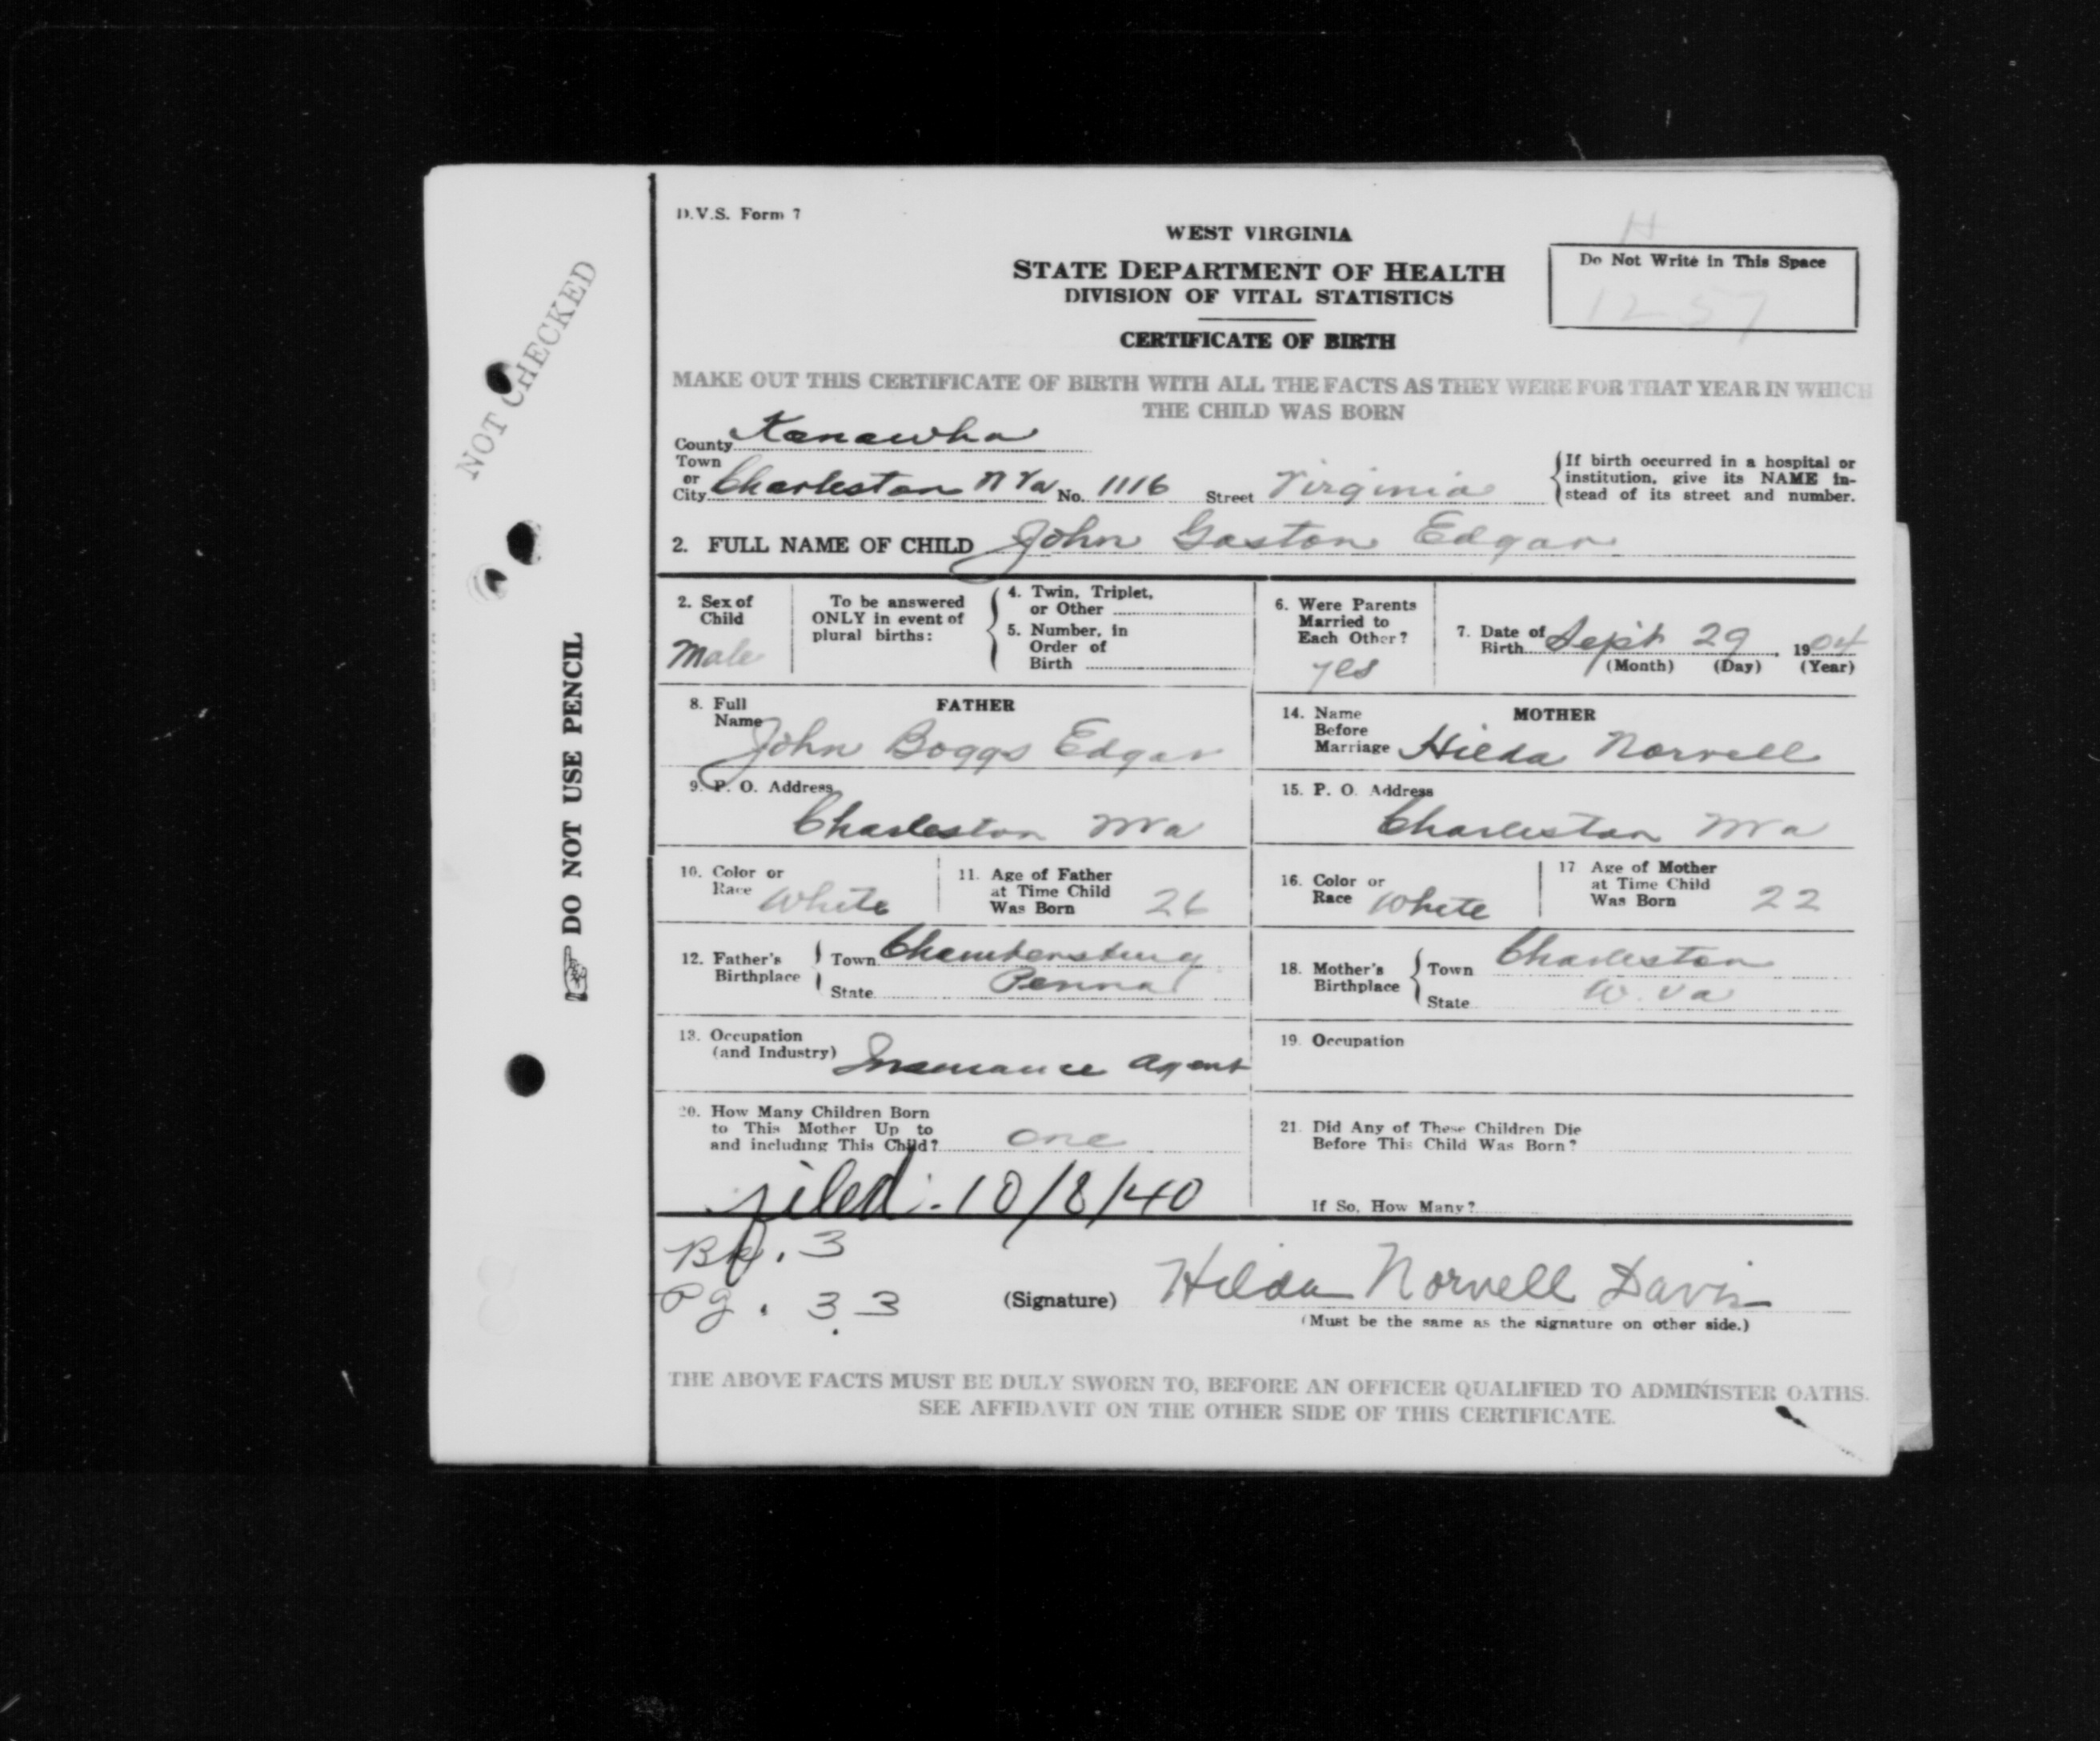 D.V.S. Form 7
WEST VIRGINIA
STATE DEPARTMENT OF HEALTH
DIVISION OF VITAL STATISTICS
CERTIFICATE OF BIRTH
H
Do Not Write in This Space
1257
MAKE OUT THIS CERTIFICATE OF BIRTH WITH ALL THE FACTS AS THEY WERE FOR THAT YEAR IN WHICH
THE CHILD WAS BORN
County Kanawha
Town or City Charleston W Va No. 1116 Street Virginia
{If birth occurred in a hospital or
institution, give its NAME in-
stead of its street and number.
2. FULL NAME OF CHILD John Gaston Edgar
2. Sex of Child Male
To be answered
ONLY in event of
plural births:
4. Twin, Triplet,
or Other
5. Number, in
Order of
Birth
6. Were Parents
Married to
Each Other?
yes
7. Date of Birth Sept 29, 1904
(Month) (Day) (Year)
FATHER
8. Full Name John Boggs Edgar
9. P. O. Address
Charleston W Va
10. Color or Race White
11. Age of Father
at Time Child
Was Born 26
12. Father's Birthplace
Town Chambersburg
State Penna
13. Occupation
(and Industry) Insurance agent
MOTHER
14. Name
Before
Marriage Hilda Norvell
15. P. O. Address
Charleston W Va
16. Color or Race White
17 Age of Mother
at Time Child
Was Born 22
18. Mother's Birthplace
Town Charleston
State W. Va
19. Occupation
20. How Many Children Born
to This Mother Up to
and including This Child? one
21. Did Any of These Children Die
Before This Child Was Born?
If So, How Many?
filed. 10/8/40
Bk. 3
Pg. 33
(Signature) Hilda Norvell Davis
(Must be the same as the signature on other side.)
THE ABOVE FACTS MUST BE DULY SWORN TO, BEFORE AN OFFICER QUALIFIED TO ADMINISTER OATHS.
SEE AFFIDAVIT ON THE OTHER SIDE OF THIS CERTIFICATE.
NOT CHECKED
DO NOT USE PENCIL